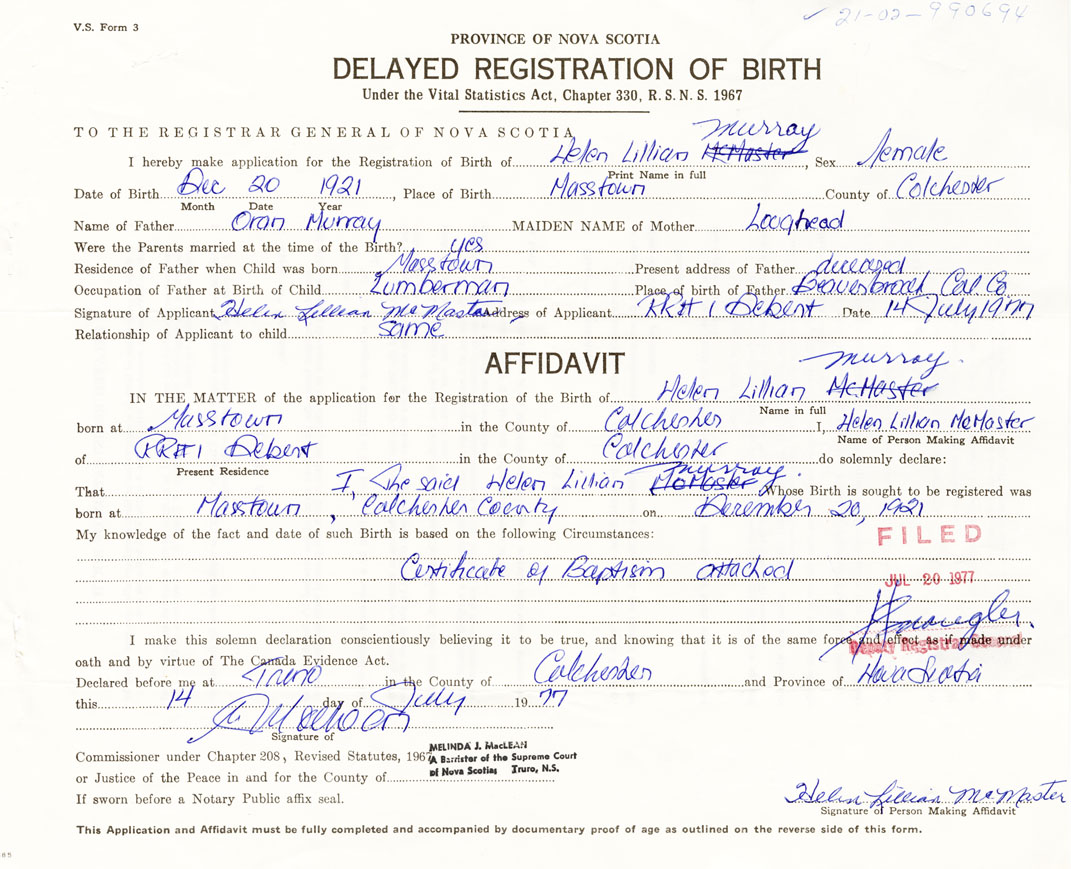 V.S. Form 3
✓ 21-02-990694
PROVINCE OF NOVA SCOTIA
DELAYED REGISTRATION OF BIRTH
Under the Vital Statistics Act, Chapter 330, R. S. N. S. 1967
TO THE REGISTRAR GENERAL OF NOVA SCOTIA
Murray
I hereby make application for the Registration of Birth of Helen Lillian McMaster, Sex female
Print Name in full
Date of Birth Dec 20 1921, Place of Birth Masstown County of Colchester
Month Date Year
Name of Father Oran Murray MAIDEN NAME of Mother Loughead
Were the Parents married at the time of the Birth? yes
Residence of Father when Child was born Masstown Present address of Father deceased
Occupation of Father at Birth of Child Lumberman Place of birth of Father Beaverbrook Col Co.
Signature of Applicant Helen Lillian McMaster Address of Applicant RR#1 Debert Date 14 July 1977
Relationship of Applicant to child same
AFFIDAVIT
Murray.
IN THE MATTER of the application for the Registration of the Birth of Helen Lillian McMaster
Name in full
born at Masstown in the County of Colchester I, Helen Lillian McMaster
Name of Person Making Affidavit
of RR#1 Debert in the County of Colchester do solemnly declare:
Present Residence
Murray.
That I, the said Helen Lillian McMaster Whose Birth is sought to be registered was
born at Masstown, Colchester County on December 20, 1921
My knowledge of the fact and date of such Birth is based on the following Circumstances:
FILED
Certificate of Baptism attached
JUL 20 1977
I make this solemn declaration conscientiously believing it to be true, and knowing that it is of the same force and effect as if made under
Deputy Registrar General
oath and by virtue of The Canada Evidence Act.
Declared before me at Truro in the County of Colchester and Province of Nova Scotia
this 14 day of July 1977
Signature of
Commissioner under Chapter 208, Revised Statutes, 1967
MELINDA J. MacLEAN
A Barrister of the Supreme Court
of Nova Scotia Truro, N.S.
or Justice of the Peace in and for the County of
If sworn before a Notary Public affix seal.
Helen Lillian McMaster
Signature of Person Making Affidavit
This Application and Affidavit must be fully completed and accompanied by documentary proof of age as outlined on the reverse side of this form.